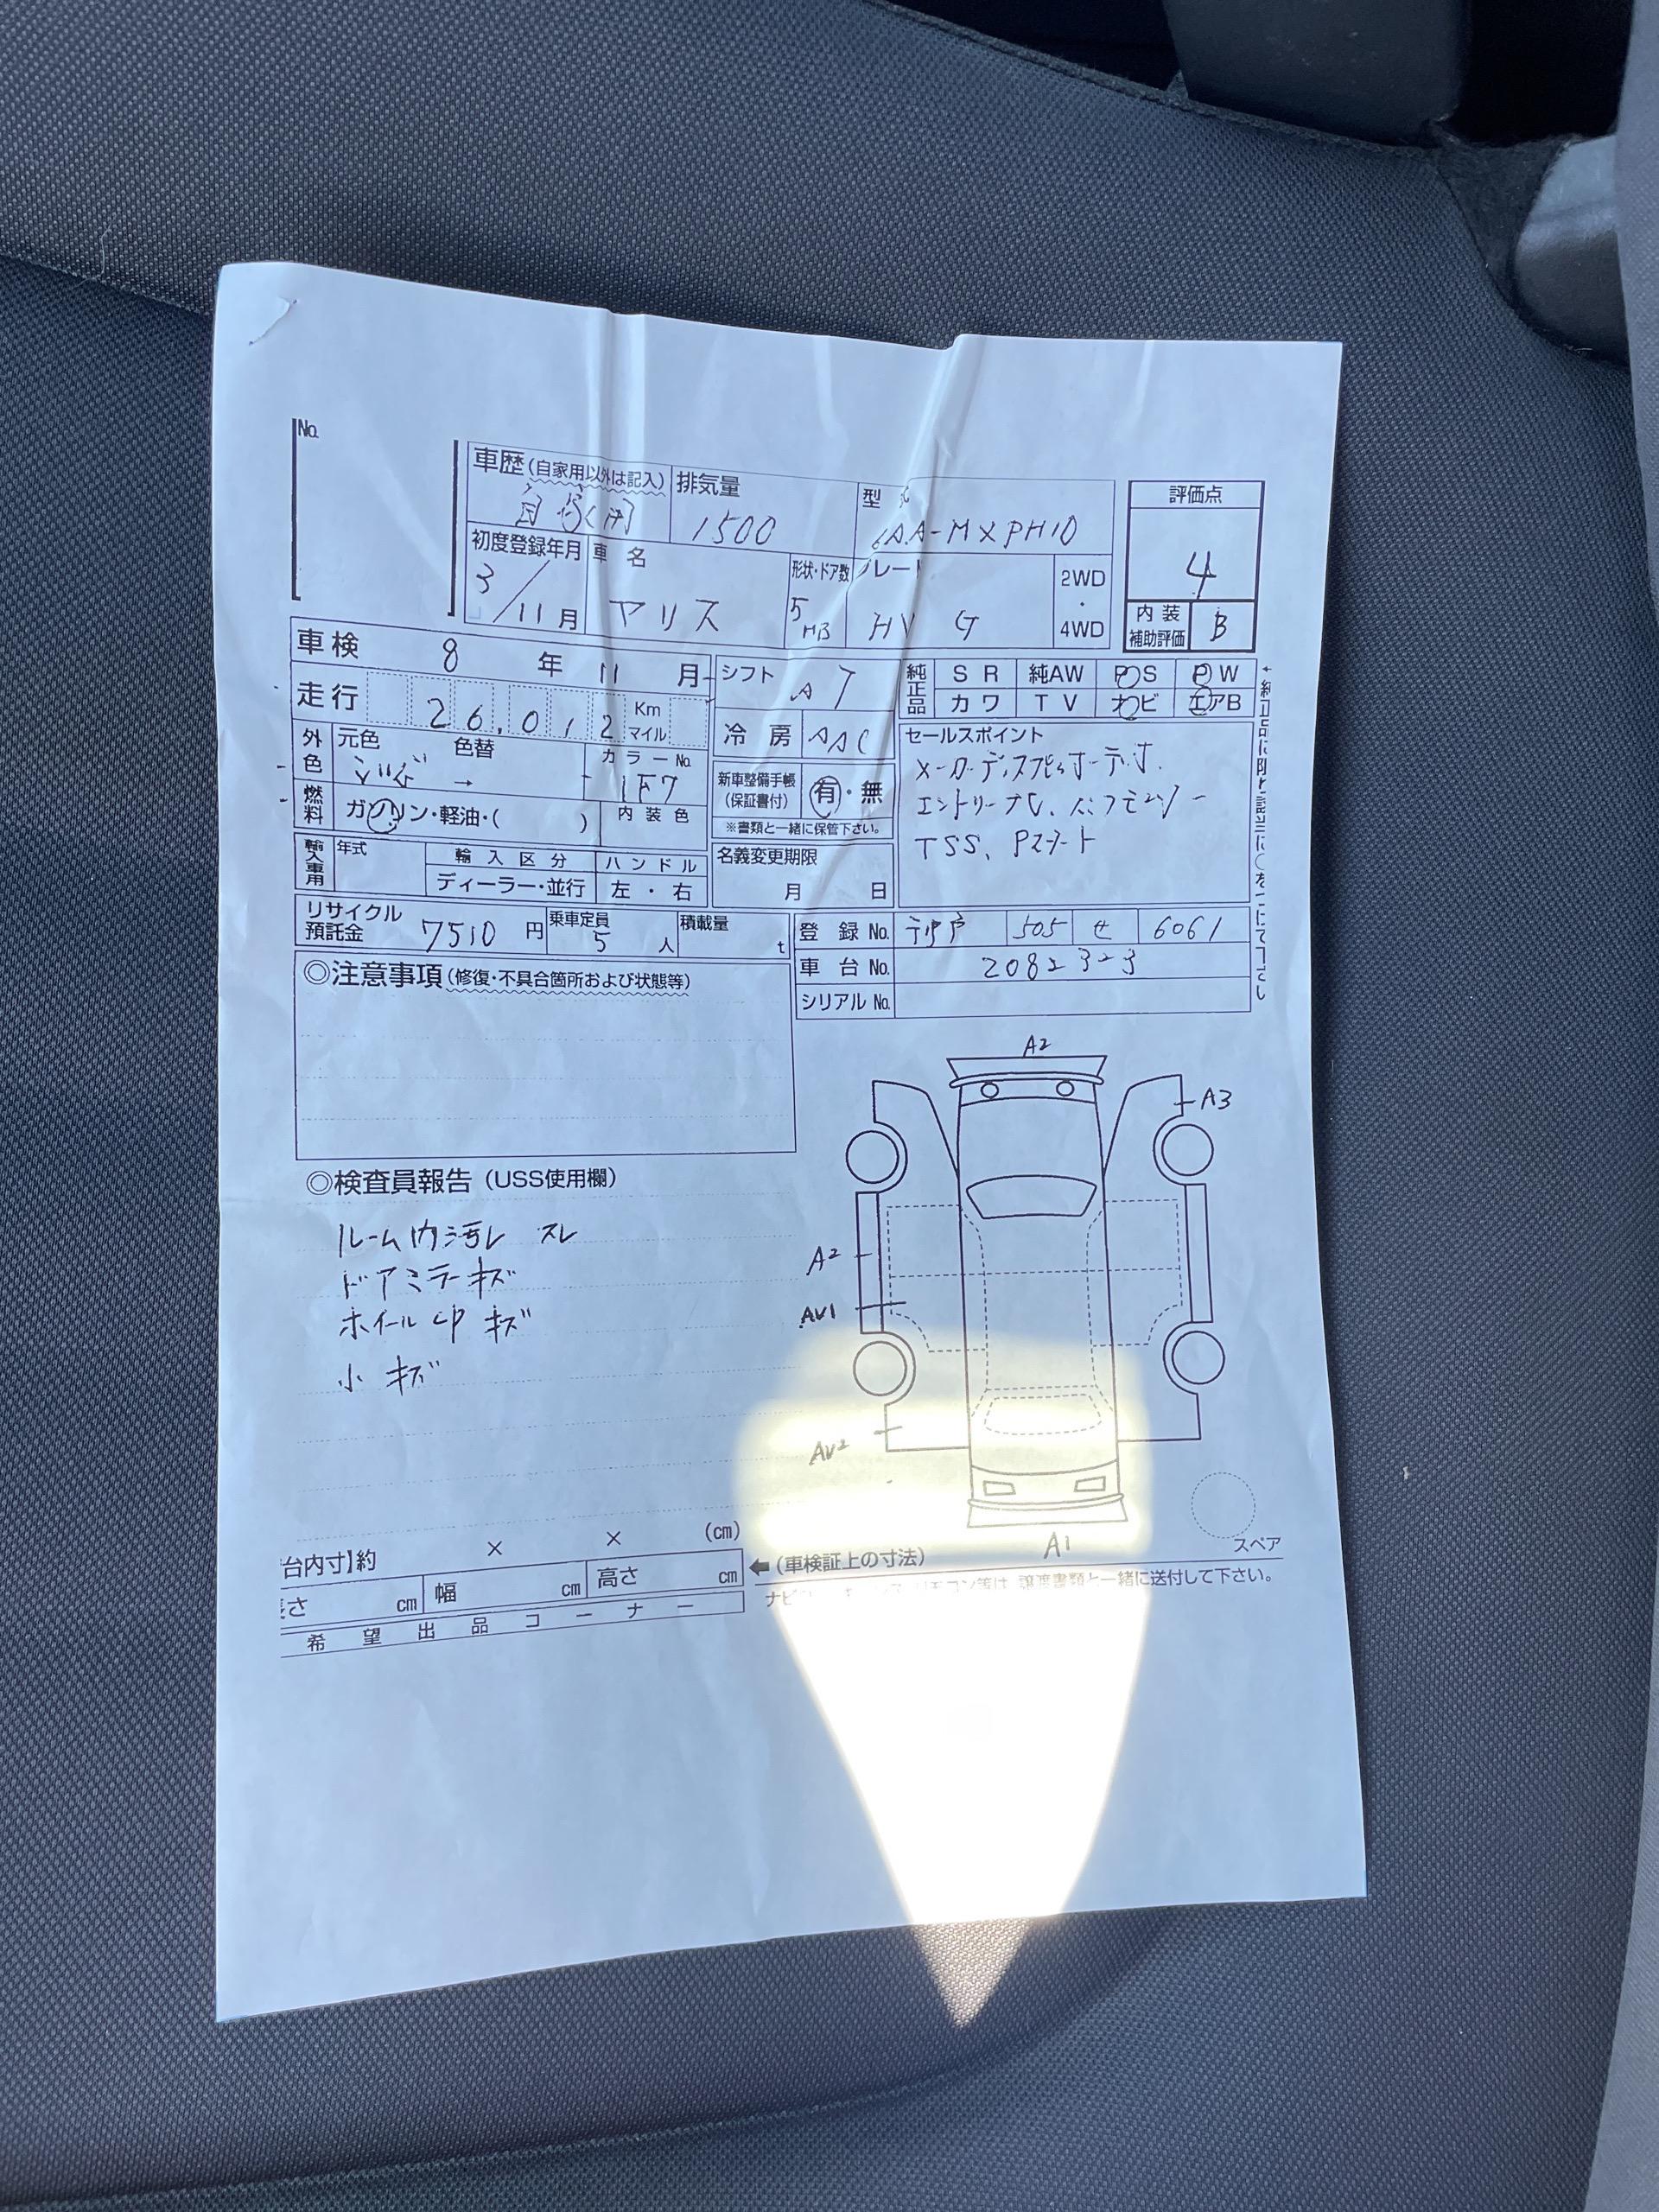 No.
車歴(自家用以外は記入)
排気量
1500
型
AA-MXPH10
評価点
4
内装
補助評価
B
初度登録年月
3/11月
車名
ヤリス
形状・ドア数
5
HB
グレード
HV G
2WD
・
4WD
車検 8年11月
走行 26,012 Km
マイル
シフト AT
純正品
SR 純AW PS PW
カワ TV ナビ エアB
外色
元色 色替 カラーNo.
→ 1F7
冷房 AAC
セールスポイント
TSS、Pスタート
燃料
ガソリン・軽油・( )
内装色
新車整備手帳
(保証書付)
有・無
※書類と一緒に保管下さい。
輸入車用
年式
輸入区分
ディーラー・並行
ハンドル
左・右
名義変更期限
月 日
リサイクル
預託金
7510円
乗車定員
5人
積載量
t
登録No. 505 せ 6061
車台No. 2082323
シリアルNo.
◎注意事項(修復・不具合箇所および状態等)
◎検査員報告(USS使用欄)
ルーム内汚レ スレ
ドアミラーキズ
ホイールCPキズ
小キズ
A2
A3
A2
AV1
AV2
A1
スペア
台内寸】約 × × (cm)
さ cm 幅 cm 高さ cm
←(車検証上の寸法)
譲渡書類と一緒に送付して下さい。
希望出品コーナー